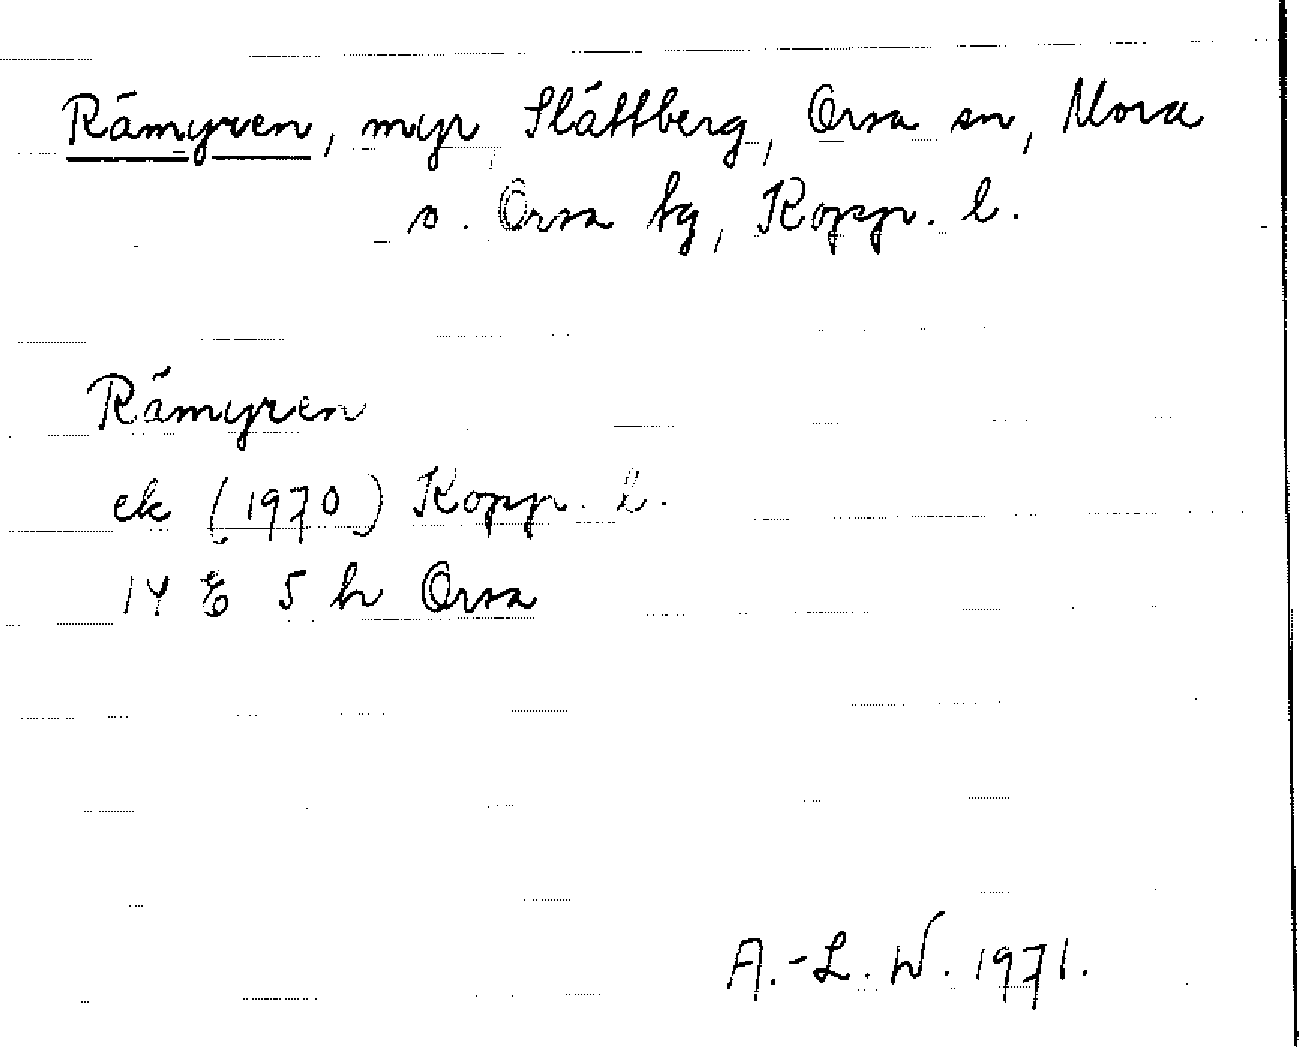 Rämyren, myr, Slättberg, Orsa sn, Mora
o. Orsa tg, Kopp. l.
Rämyren
ek (1970) Kopp. l.
14 E 5 h Orsa
A.-L. W. 1971.